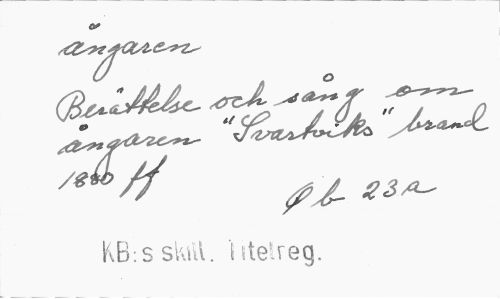 ångaren
Berättelse och sång om
ångaren "Svartviks" brand
1880 ff
Øb 23a
KB:s skill. Titelreg.